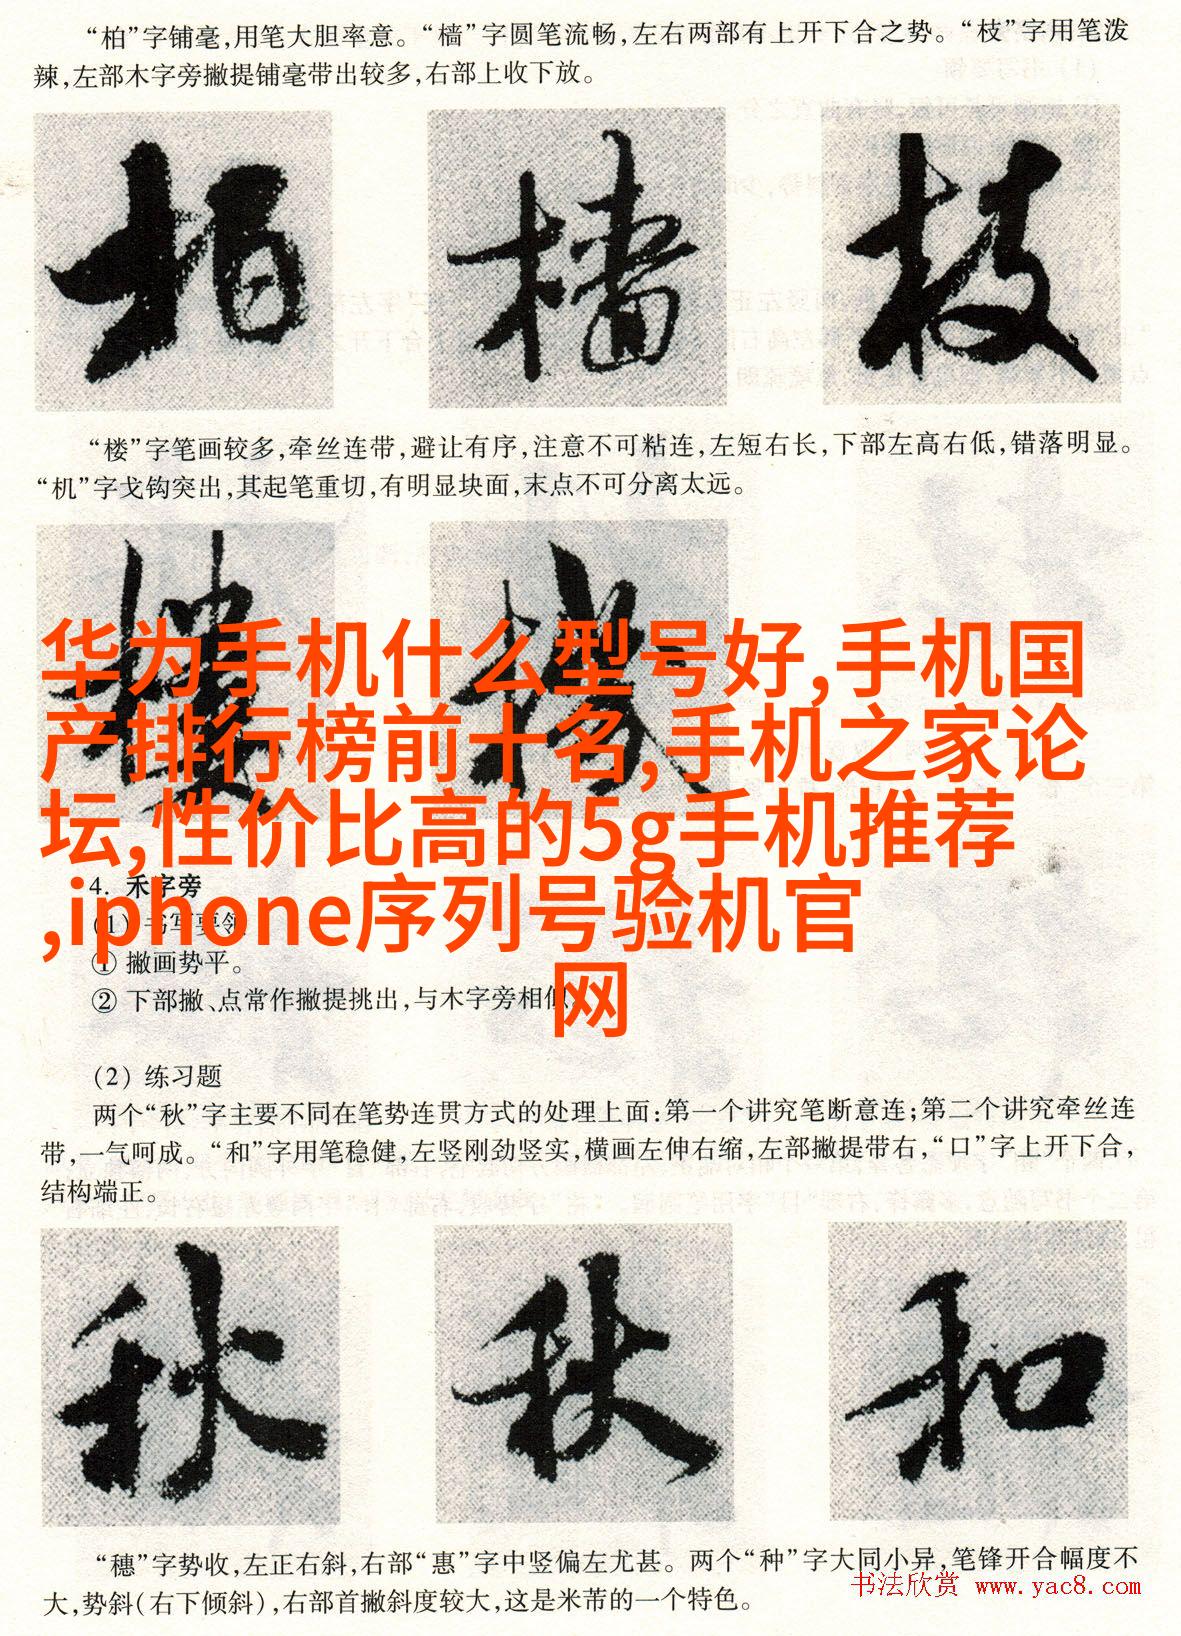 “柏”字铺毫,用笔大胆率意。“樯”字圆笔流畅,左右两部有上开下合之势。“枝”字用笔泼
辣,左部木字旁撇提铺毫带出较多,右部上收下放。
柏 樯 枝
“楼”字笔画较多,牵丝连带,避让有序,注意不可粘连,左短右长,下部左高右低,错落明显。
“机”字戈钩突出,其起笔重切,有明显块面,末点不可分离太远。
楼 机
华为手机什么型号好,手机国
产排行榜前十名,手机之家论
坛,性价比高的5g手机推荐
,iphone序列号验机官
网
4. 禾字旁
(1) 书写要领
① 撇画势平。
② 下部撇、点常作撇提挑出,与木字旁相似。
(2) 练习题
两个“秋”字主要不同在笔势连贯方式的处理上面:第一个讲究笔断意连;第二个讲究牵丝连
带,一气呵成。“和”字用笔稳健,左竖刚劲竖实,横画左伸右缩,左部撇提带右,“口”字上开下合,
结构端正。
秋 秋 和
“穗”字势收,左正右斜,右部“惠”字中竖偏左尤甚。两个“种”字大同小异,笔锋开合幅度不
大,势斜(右下倾斜),右部首撇斜度较大,这是米芾的一个特色。
书法欣赏 www.yac8.com